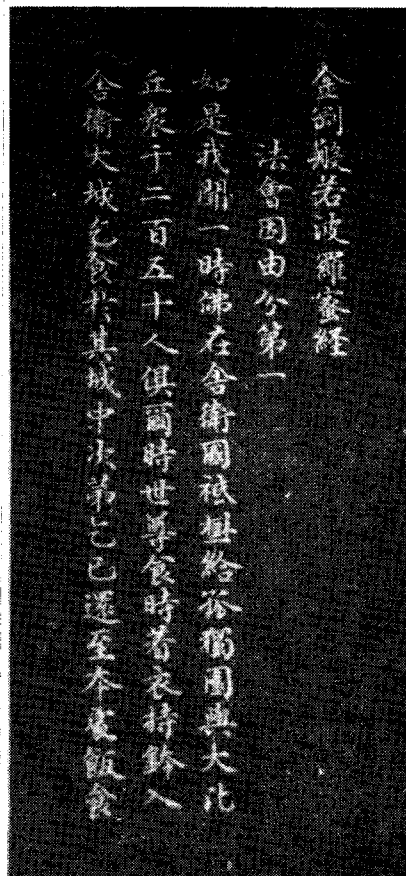 金剛般若波羅蜜經
法會因由分第一
如是我聞一時佛在舍衛國祇樹給孤獨園與大比
丘衆千二百五十人俱爾時世尊食時著衣持鉢入
舍衛大城乞食於其城中次第乞已還至本處飯食